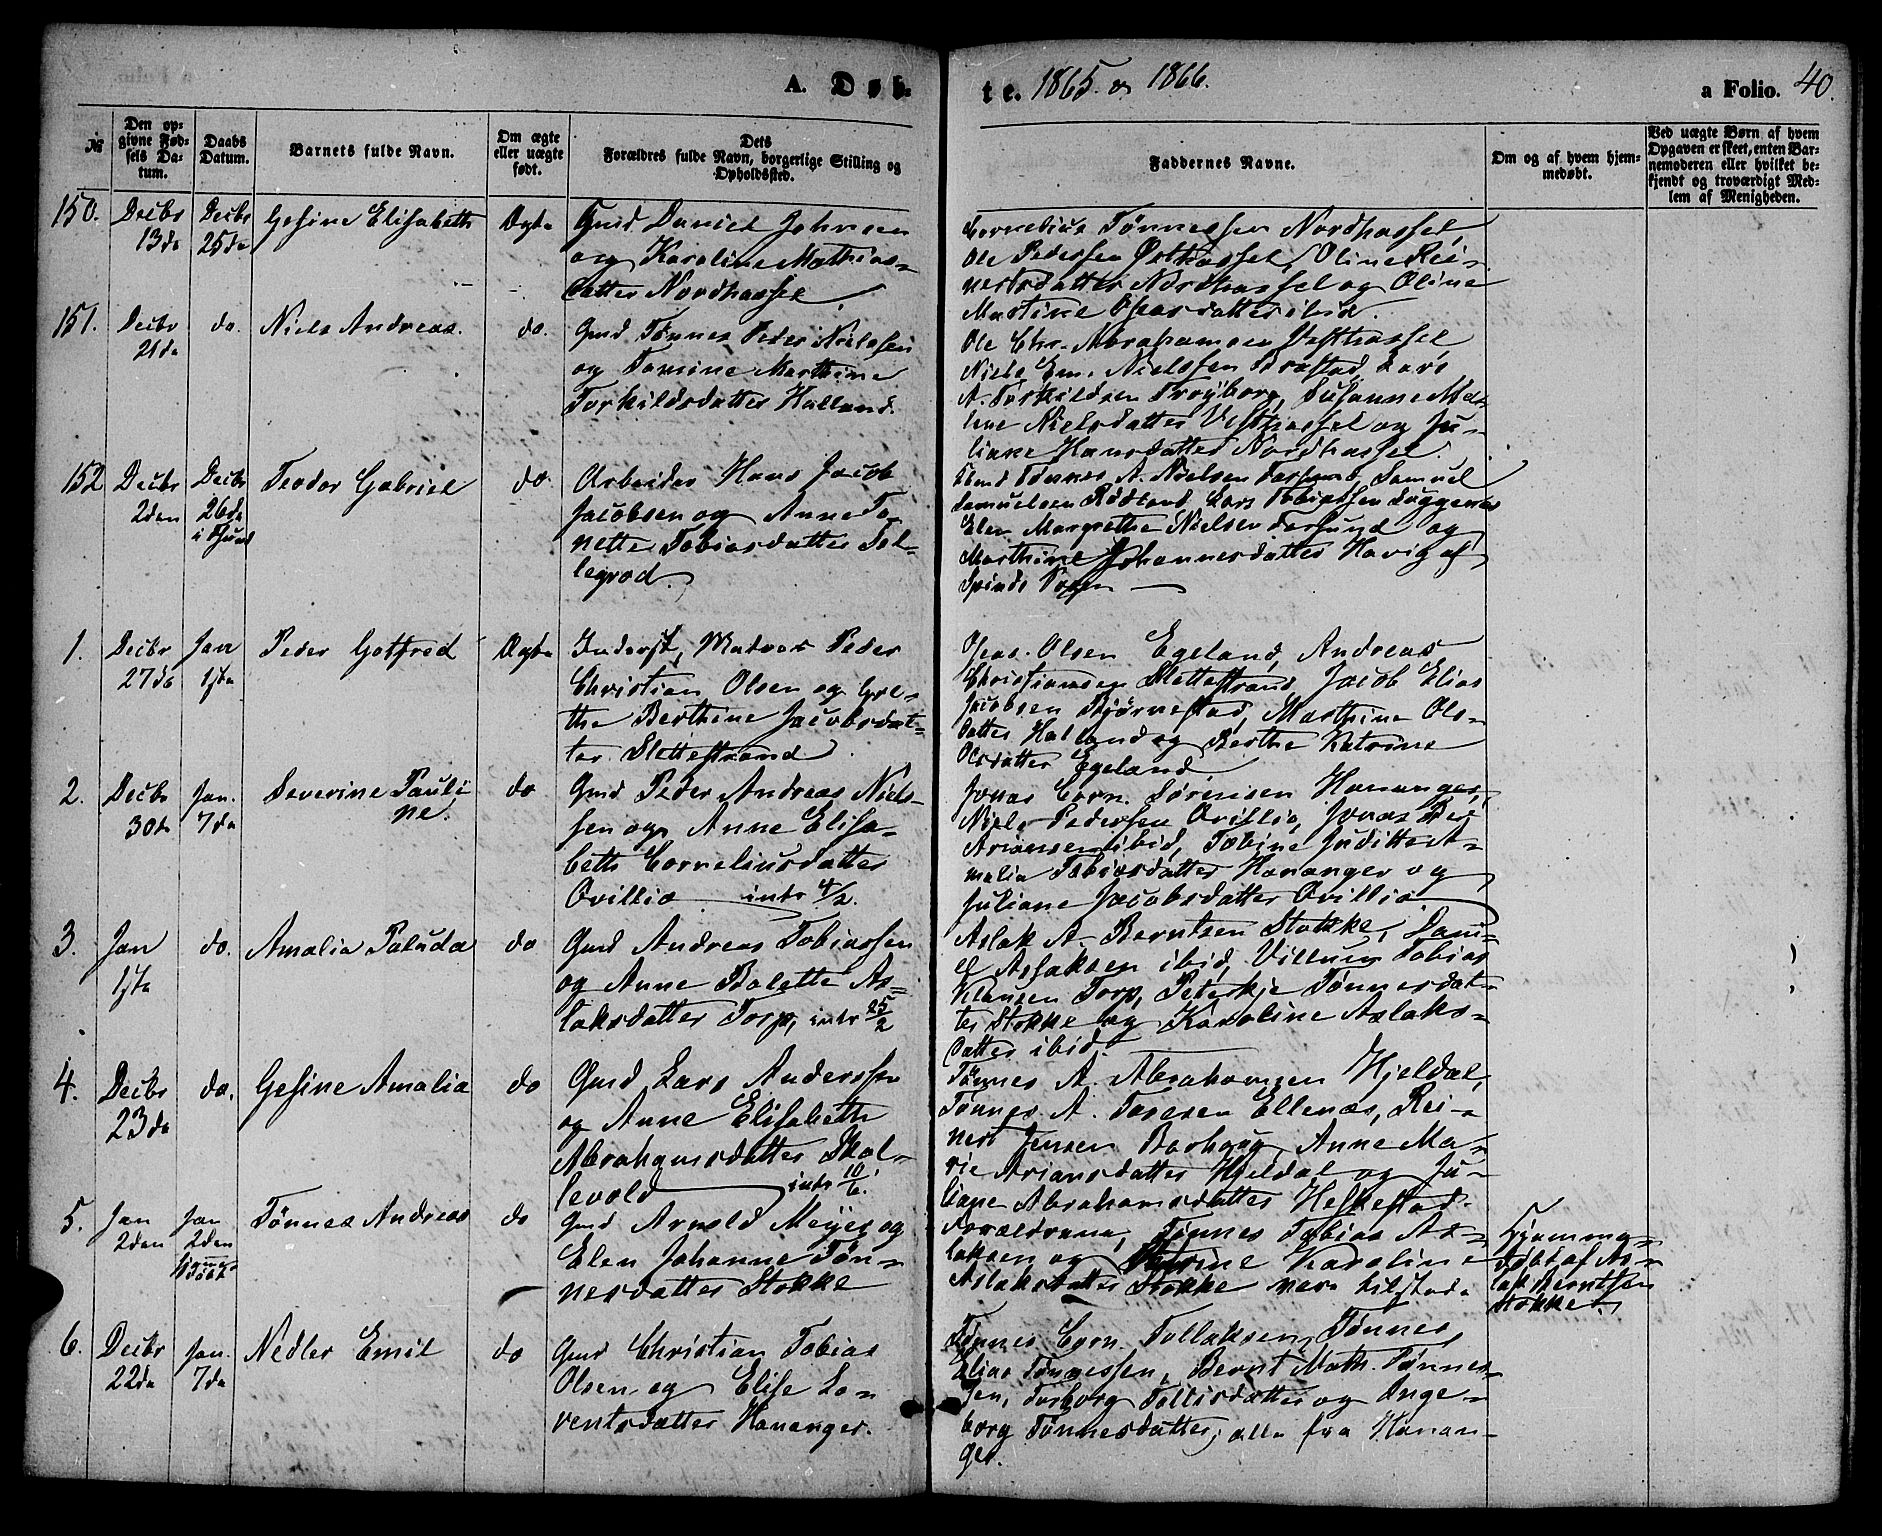 A. Døb-
te. 1865. og 1866.
a Folio. 40.
№
Den op-
givne Fød-
sels Da-
tum.
Daabs
Datum.
Barnets fulde Navn.
Om ægte
eller uægte
født.
Dets
Forældres fulde Navn, borgerlige Stilling og
Opholdssted.
Faddernes Navne.
Om og af hvem hjem-
medøbt.
Ved uægte Børn af hvem
Opgaven er skeet, enten Bar-
nemoderen eller hvilket be-
kjendt og troværdigt Med-
lem af Menigheden.
150.
Decbr
13de
Decbr
25de
Gesine Elisabeth
Ægte
Gmd Daniel Johnsen
og Karoline Mathias-
datter Nordhassel
Cornelius Tønnessen Nordhassel,
Ole Pedersen Østhassel, Oline Rei-
nertsdatter Nordhassel og Oline
Martine Oseasdatter ibid.
151.
Decbr
21de
do.
Niels Andreas.
do.
Gmd Tønnes Peder Nielsen
og Tomine Marthine
Torkildsdatter Halland.
Ole Chr. Abrahamsen Vesthassel,
Niels Em. Nielsen Brastad, Lars
A. Torkildsen Trøyborg, Susanne Ma-
line Nielsdatter Vesthassel og Ju-
liane Hansdatter Nordhassel.
152
Decbr
2den
Decbr
26de
i Fsund
Teodor Gabriel
do.
Arbeider Hans Jacob
Jacobsen og Anne To-
nette Tobiasdatter Jøl-
legrød.
Tønnes A. Nielsen Farsund, Samuel
Samuelsen Rødland, Lars Tobiassen Duggenes
Elen Margrethe Nielsen Farsund og
Marthine Johannesdatter Havig af
Spinds Sogn
1.
Decbr
27de
Jan
1ste
Peder Gotfred
Ægte
Inderst, Matros Peder
Christian Olsen og Gre-
the Berthine Jacobsdat-
ter Slettestrand.
Oseas Olsen Egeland, Andreas
Christiansen Slettestrand, Jacob Elias
Jacobsen Bjørnestad, Marthine Ols-
datter Halland og Berthe Katrine
Olsdatter Egeland
2.
Decbr
30te
Jan.
7de
Severine Pauli-
ne.
do
Gmd Peder Andreas Niel-
sen og Anne Elisa-
beth Corneliusdatter
Ovillie intr 4/2.
Jonas Corn. Sørensen Hananger,
Niels Pedersen Ovillie, Jonas
Ariansen ibid, Tobine Juditte A-
malie Tobiasdatter Hananger og
Juliane Jacobsdatter Ovillie
3.
Jan
1ste
do.
Amalia Paluda
do
Gmd Andreas Tobiassen
og Anne Bolette As-
laksdatter Torp, intr 25/2
Aslak A. Berntsen Stokke, Dani-
el Aslaksen ibid, Villum Tobias
Klausen Torp, Peterkje Tønnesdat-
ter Stokke og Karoline Aslaks-
datter ibid.
4.
Decbr
23de
do.
Gesine Amalia
do
Gmd Lars Anderssen
og Anne Elisabeth
Abrahamsdatter Skol-
levold intr 10/6.
Tønnes A. Abrahamsen Hjeldal,
Tønnes A. Taresen Ellenæs, Rei-
nert Jensen Berhoug, Anne Ma-
rie Ariansdatter Hjeldal og Ju-
liane Abrahamsdatter Heskestad.
5.
Jan
2den
Jan
2den
hjemme-
døbt
Tønnes Andreas
do
Gmd Arnold Meyer og
Elen Johanne Tøn-
nesdatter Stokke
Forældrene, Tønnes Tobias As-
laksen og Katrine Karoline
Aslaksdatter Stokke vare tilstede
Hjemme-
døbt af As-
lak Berntsen
Stokke.
6.
Decbr
22de
Jan.
7de
Nedler Emil
do
Gmd Christian Tobias
Olsen og Elise Lo-
rentsdatter Hananger.
Tønnes Corn. Tollaksen, Tønnes
Elias Tønnessen, Bernt Math. Tønnes-
sen, Torborg Tollisdatter og Inge-
borg Tønnesdatter, alle fra Hanan-
ger.